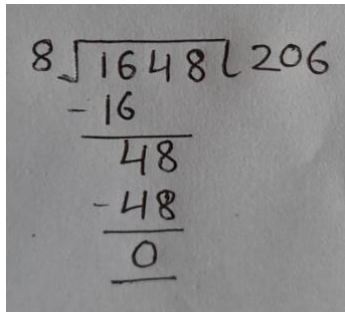 8 √1648 ( 206
-16
48
-48
0